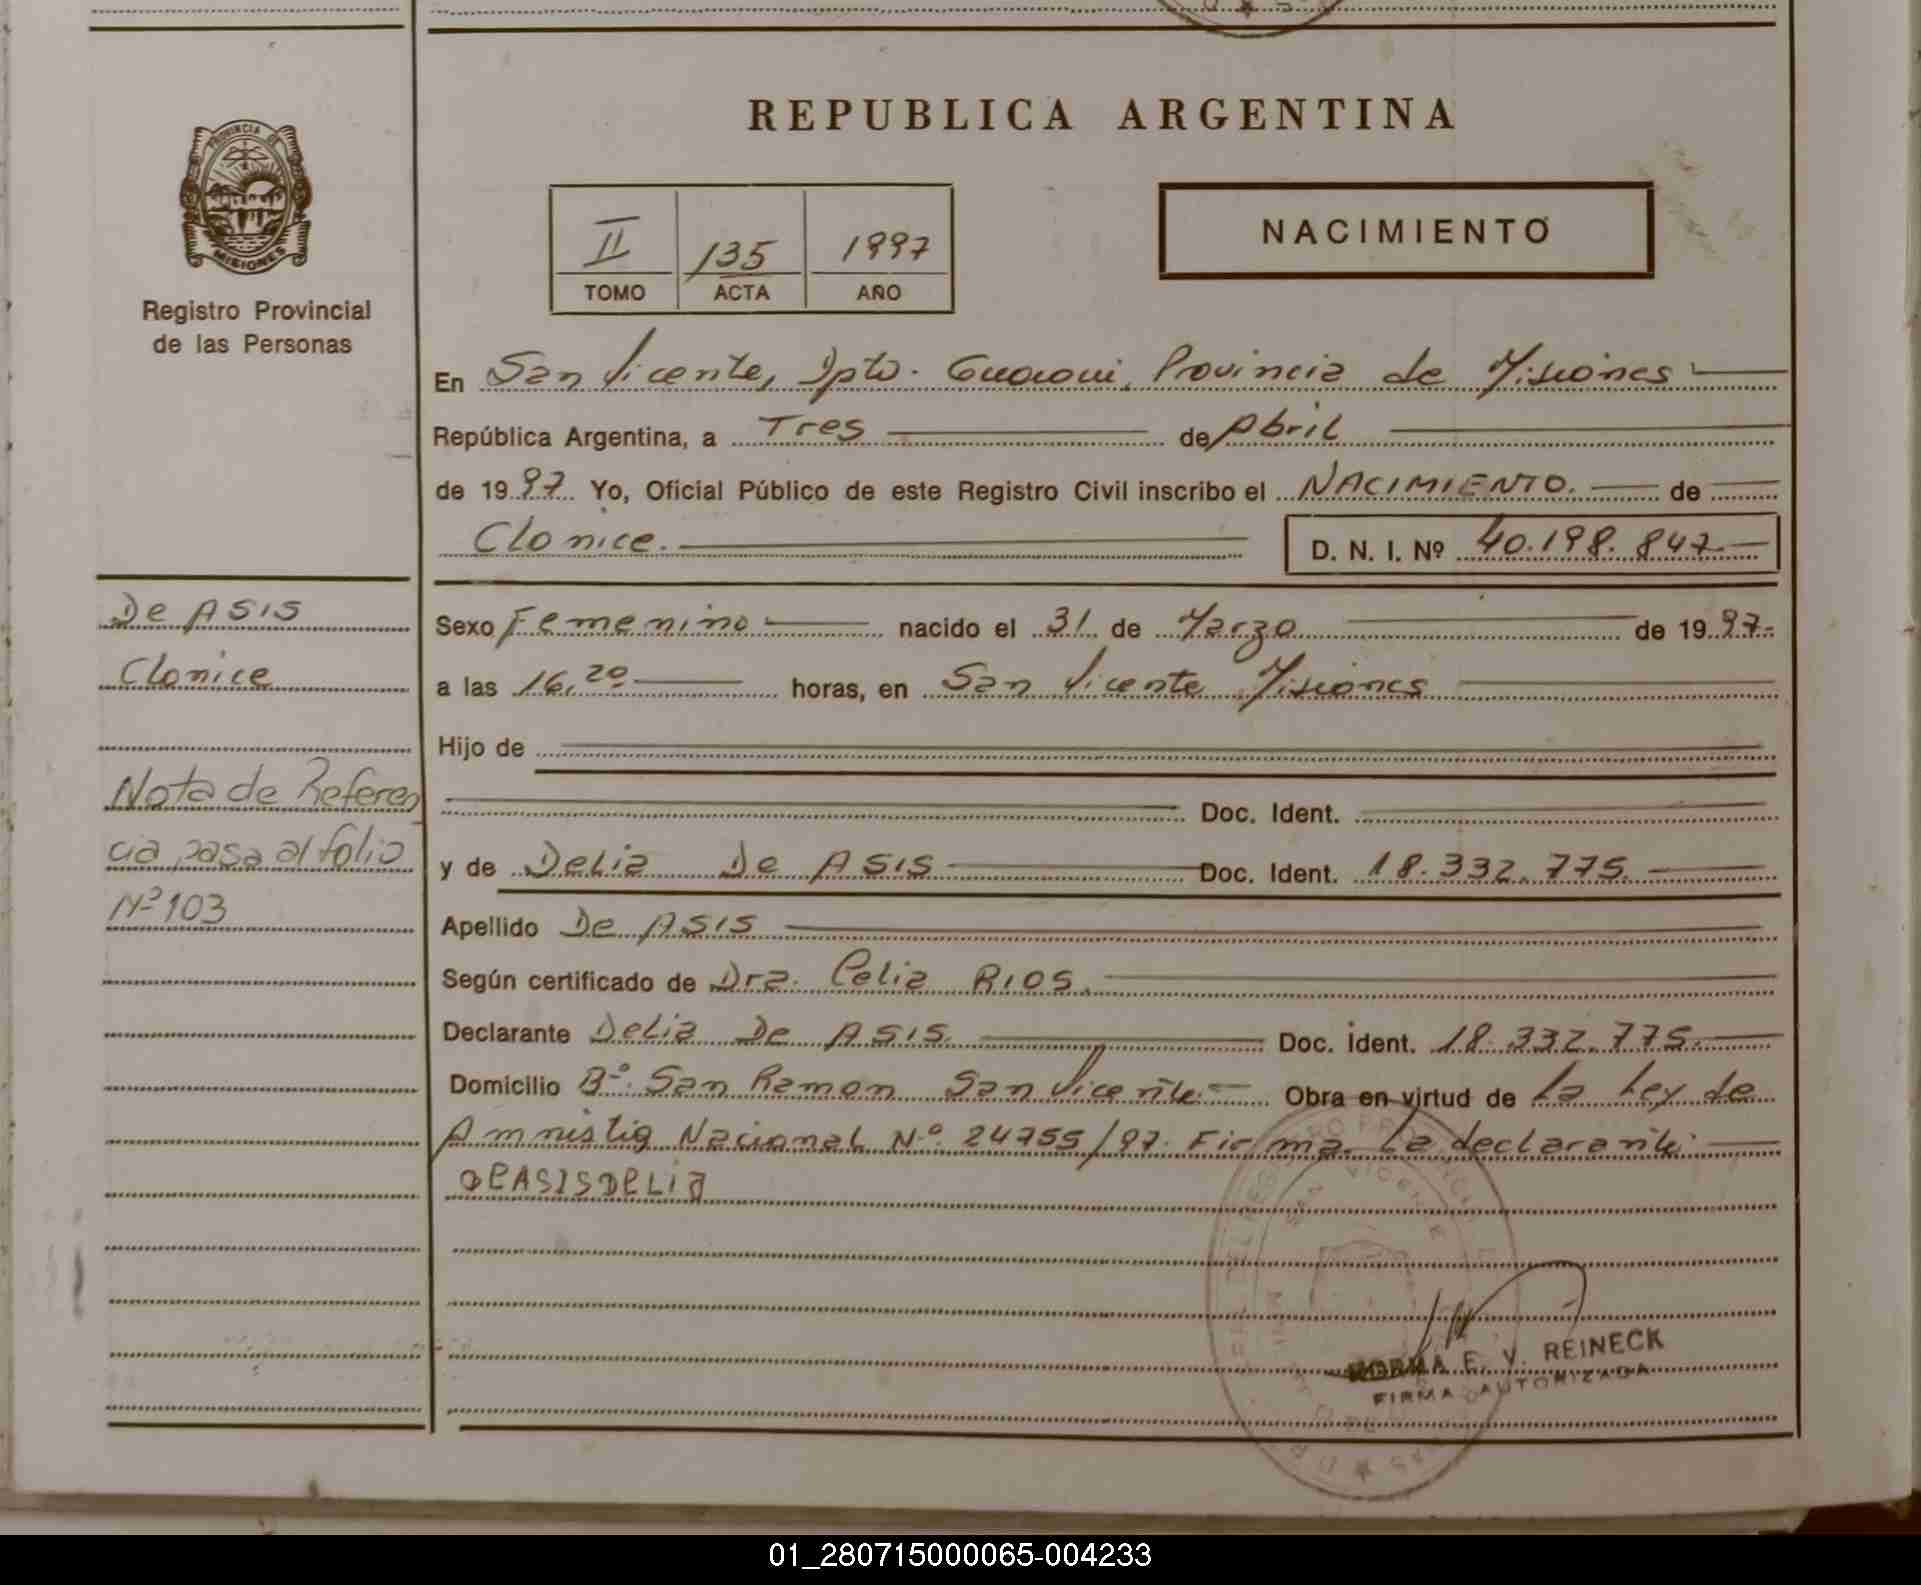 REPUBLICA ARGENTINA
PROVINCIA DE
MISIONES
Registro Provincial
de las Personas
II 135 1997
TOMO ACTA AÑO
NACIMIENTO
En San Vicente, Dpto. Guaraní, Provincia de Misiones
República Argentina, a Tres de Abril
de 1997 Yo, Oficial Público de este Registro Civil inscribo el NACIMIENTO. de
Clonice. D. N. I. Nº 40.198.847.
De ASIS
Clonice
Nota de Referen
cia pasa al folio
Nº 103
Sexo Femenino nacido el 31 de Marzo de 1997.
a las 16,20 horas, en San Vicente Misiones
Hijo de
Doc. Ident.
y de Delia De ASIS Doc. Ident. 18.332.775.
Apellido De ASIS
Según certificado de Dra. Celia RIOS.
Declarante Delia De ASIS. Doc. Ident. 18.332.775.
Domicilio Bº. San Ramon San Vicente. Obra en virtud de La Ley de
Amnistia Nacional Nº. 24755/97. Firma La declarante:
DEASISDELIA
SAN VICENTE
NORMA E. V. REINECK
FIRMA AUTORIZADA
01_280715000065-004233